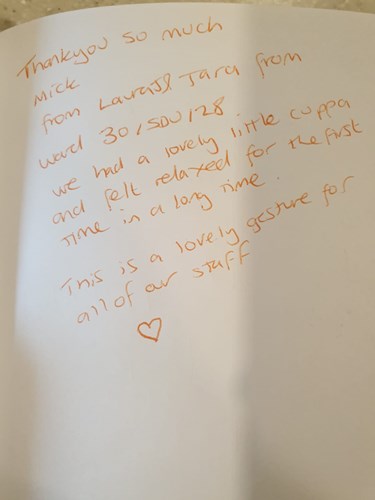 Thankyou so much
Mick
from Laura & Tara from
ward 30/SDU/28
we had a lovely little cuppa
and felt relaxed for the first
time in a long time.
This is a lovely gesture for
all of our staff
♡